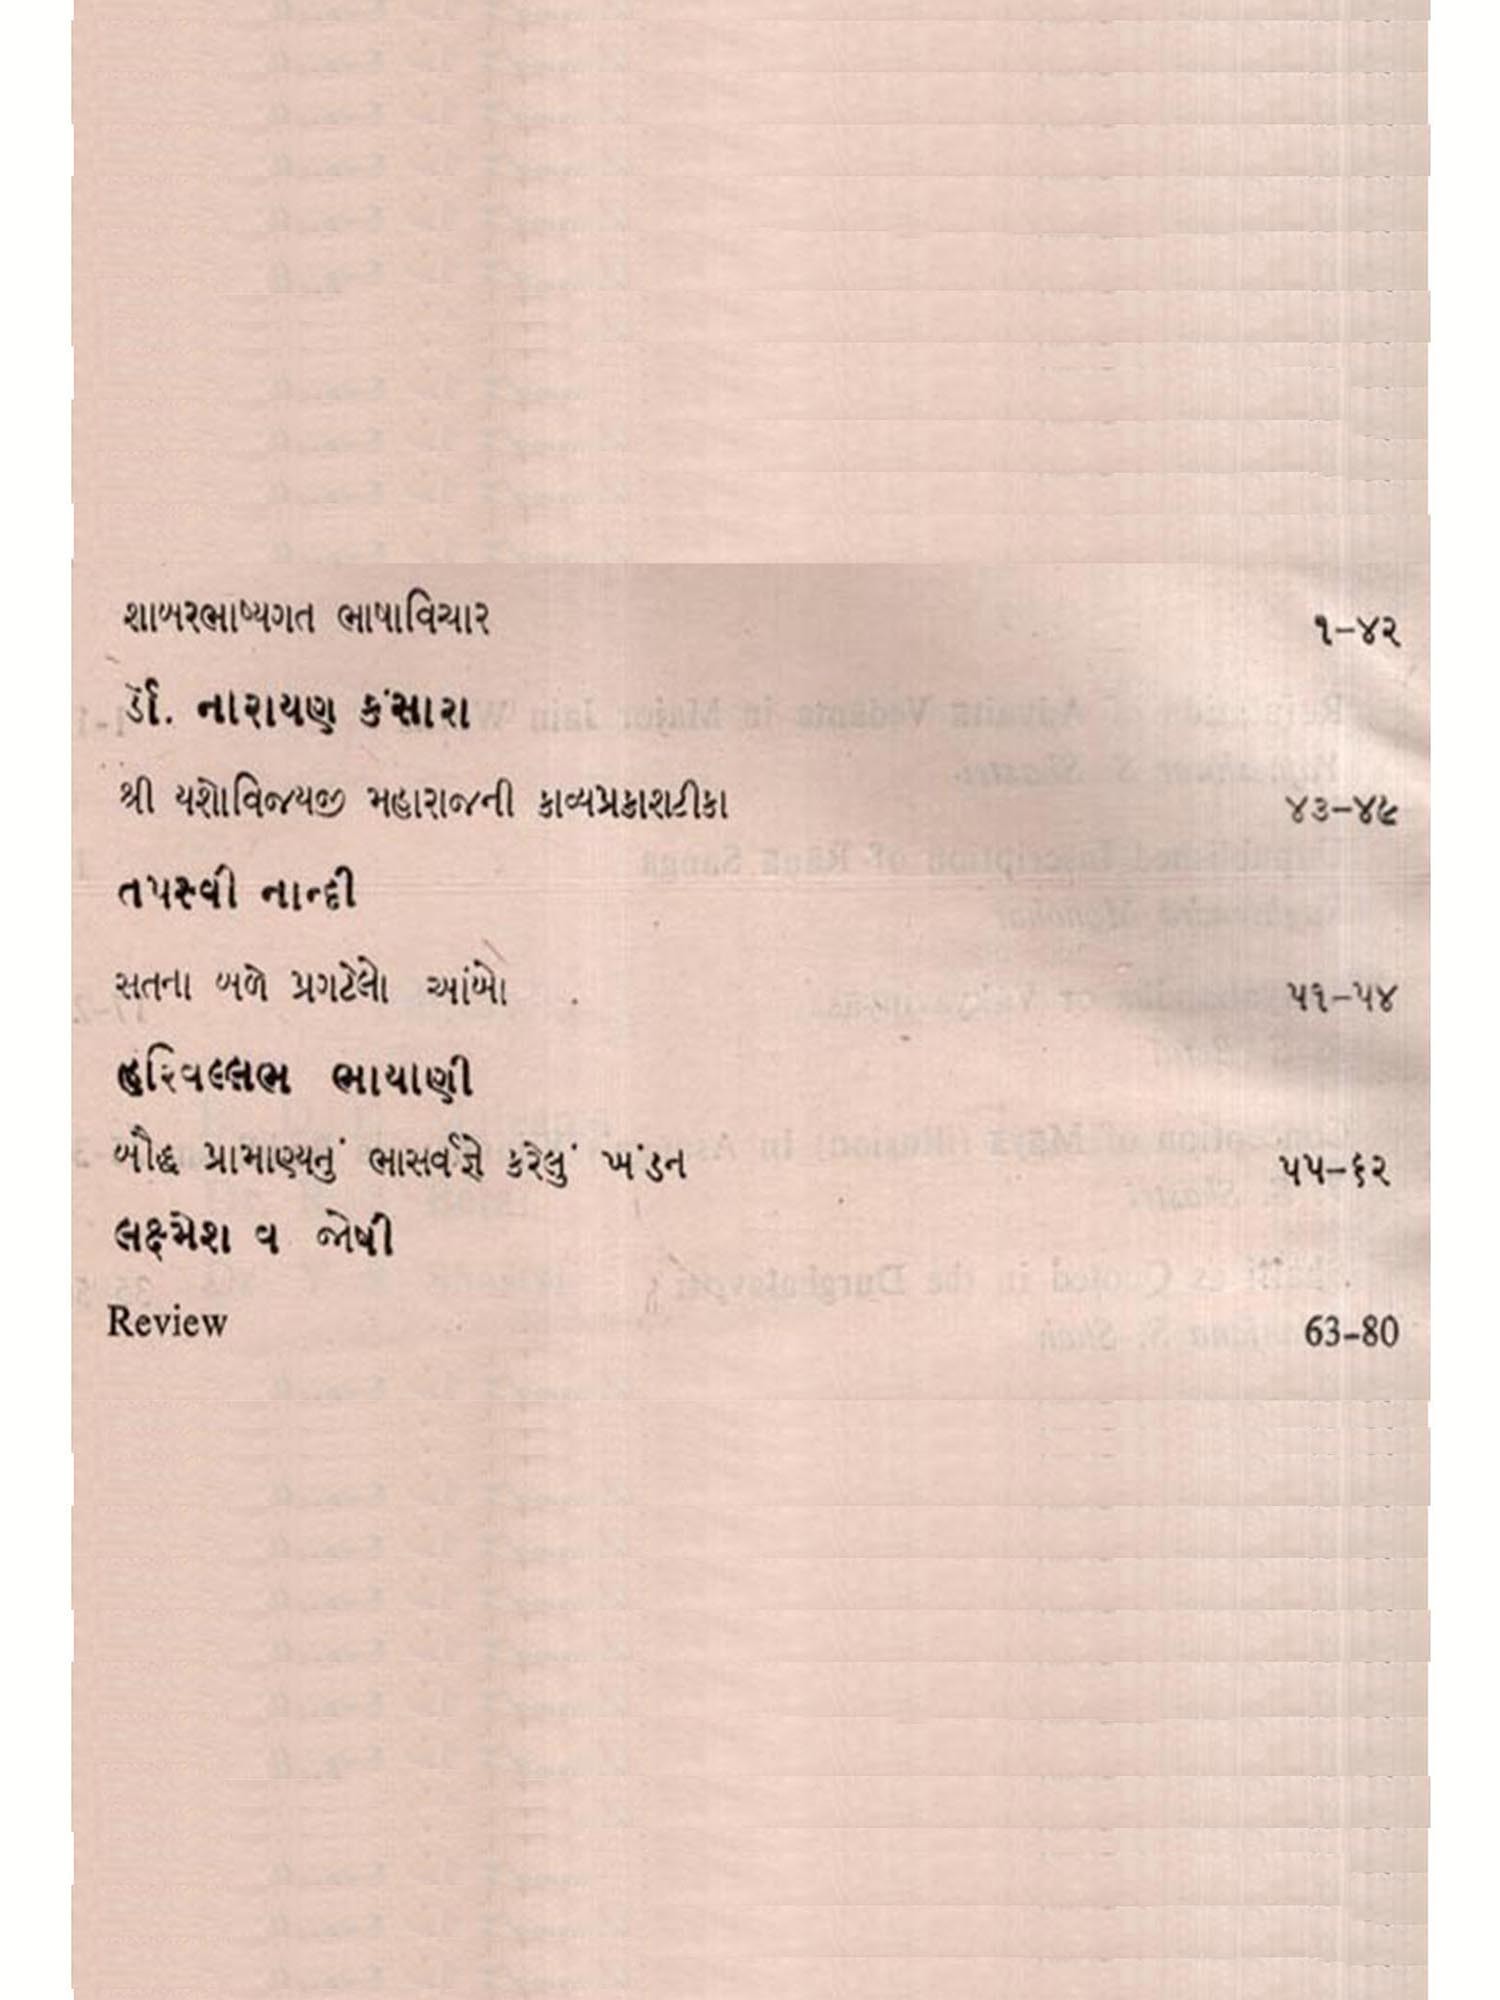 શાબરભાષ્યગત ભાષાવિચાર ૧-૪૨
ડૉ. નારાયણ કંસારા
શ્રી યશોવિજયજી મહારાજની કાવ્યપ્રકાશટીકા ૪૩-૪૯
તપસ્વી નાન્દી
સતના બળે પ્રગટેલો આંબો ૫૧-૫૪
હરિવલ્લભ ભાયાણી
બૌદ્ધ પ્રામાણ્યનું ભાસર્વજ્ઞે કરેલું ખંડન ૫૫-૬૨
લક્ષ્મેશ વ જોષી
Review 63-80